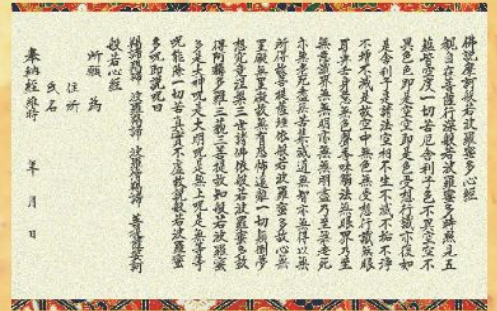 佛説摩訶般若波羅蜜多心經
觀自在菩薩行深般若波羅蜜多時照見五
蘊皆空度一切苦厄舍利子色不異空空不
異色色即是空空即是色受想行識亦復如
是舍利子是諸法空相不生不滅不垢不淨
不増不減是故空中無色無受想行識無眼
耳鼻舌身意無色聲香味觸法無眼界乃至
無意識界無無明亦無無明盡乃至無老死
亦無老死盡無苦集滅道無智亦無得以無
所得故菩提薩埵依般若波羅蜜多故心無
罣礙無罣礙故無有恐怖遠離一切顛倒夢
想究竟涅槃三世諸佛依般若波羅蜜多故
得阿耨多羅三藐三菩提故知般若波羅蜜
多是大神呪是大明呪是無上呪是無等等
呪能除一切苦真實不虚故説般若波羅蜜
多呪即説呪曰
羯諦羯諦 波羅羯諦 波羅僧羯諦 菩提薩婆訶
般若心經
所願 為
住所
氏名
奉納經 維時 年 月 日